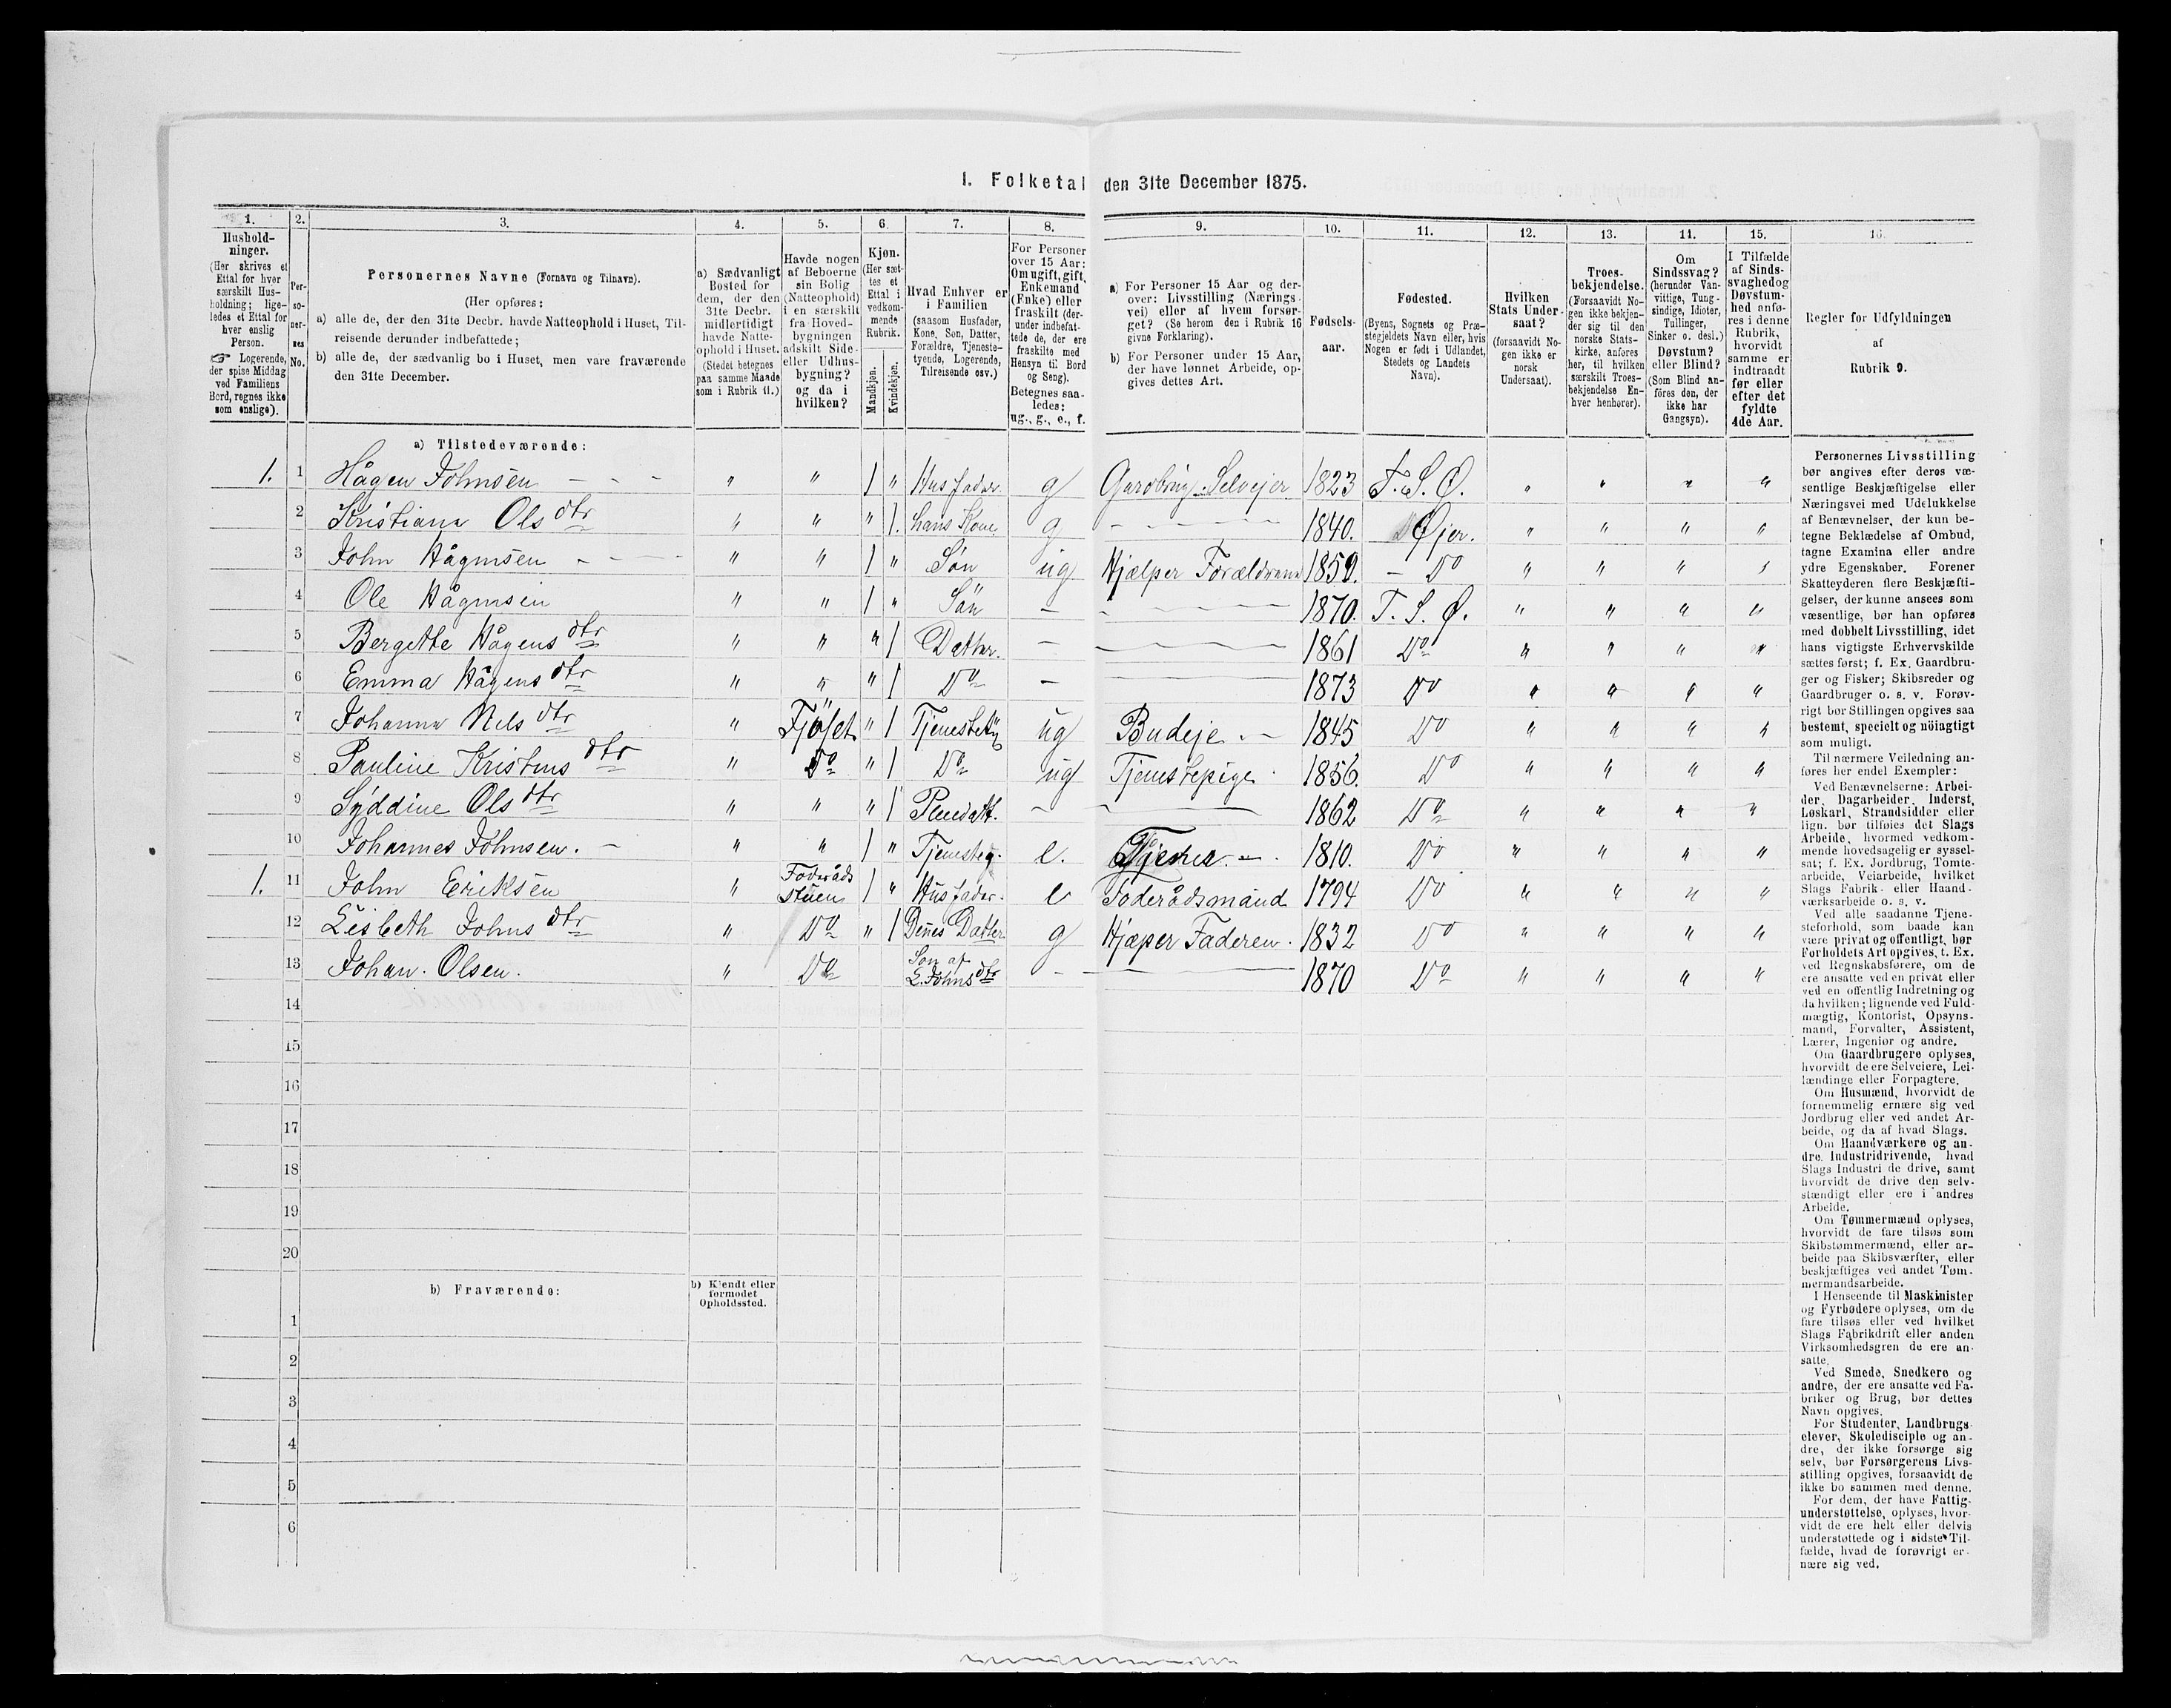 1. Folketal den 31te December 1875.
1. 2. 3. 4. 5. 6. 7. 8. 9. 10. 11. 12. 13. 14. 15. 16.
Hushold-
ninger.
(Her skrives et
Ettal for hver
særskilt Hus-
holdning; lige-
ledes et Ettal for
hver enslig
Person.
☞ Logerende,
der spise Middag
ved Familiens
Bord, regnes ikke
som enslige).
Per-
so-
ner-
nes
No.
Personernes Navne (Fornavn og Tilnavn).
(Her opføres:
a) alle de, der den 31te Decbr. havde Natteophold i Huset, Til-
reisende derunder indbefattede;
b) alle de, der sædvanlig bo i Huset, men vare fraværende
den 31te December.
a) Sædvanligt
Bosted for
dem, der den
31te Decbr.
midlertidigt
havde Natte-
ophold i Huset.
(Stedet betegnes
paa samme Maade
som i Rubrik 11.)
Havde nogen
af Beboerne
sin Bolig
(Natteophold)
i en særskilt
fra Hoved-
bygningen
adskilt Side-
eller Udhus-
bygning?
og da i
hvilken?
Kjøn.
(Her sæt-
tes et
Ettal i
vedkom-
mende
Rubrik.
Mandkjøn.
Kvindekjøn.
Hvad Enhver er
i Familien
(saasom Husfader,
Kone, Søn, Datter,
Forældre, Tjeneste-
tyende, Logerende,
Tilreisende osv.)
For Personer
over 15 Aar:
Om ugift, gift,
Enkemand
(Enke) eller
fraskilt (der-
under indbefat-
tede de, der ere
fraskilte med
Hensyn til Bord
og Seng).
Betegnes saa-
ledes:
ug., g., e., f.
a) For Personer 15 Aar og der-
over: Livsstilling (Nærings-
vei) eller af hvem forsør-
get? (Se herom den i Rubrik 16
givne Forklaring).
b) For Personer under 15 Aar,
der have lønnet Arbeide, op-
gives dettes Art.
Fødsels-
aar.
Fødested.
(Byens, Sognets og Præ-
stegjeldets Navn eller, hvis
Nogen er født i Udlandet,
Stedets og Landets
Navn).
Hvilken
Stats Under-
saat?
(forsaavidt No-
gen ikke er
norsk
Undersaat).
Troes-
bekjendelse.
(Forsaavidt No-
gen ikke bekjen-
der sig til den
norske Stats-
kirke, anføres
her, til hvilken
særskilt Troes-
bekjendelse En-
hver henhører).
Om
Sindssvag?
(herunder Van-
vittige, Tung-
sindige, Idioter,
Tullinger,
Sinker o. desl.)
Døvstum?
eller Blind?
(Som Blind an-
føres den, der
ikke har
Gangsyn).
I Tilfælde
af Sinds-
svaghed og
Døvstum-
hed anfø-
res i denne
Rubrik,
hvorvidt
samme er
indtraadt
før eller
efter det
fyldte
4de Aar.
Regler for Udfyldningen
af
Rubrik 9.
a) Tilstedeværende:
1. 1 Hågen Johnsen - - - " " 1 " Husfader. g Gardbrug. Selvejer 1823 F. S. Ø. " " " "
2 Kristiana Ols dtr " " " 1. hans Kone g - - - 1840. Øjer. " " " "
3 John Hågensen - - " " 1 " Søn ug Hjælper Forældrene 1859. - Do " " " "
4 Ole Hågensen " " 1 " Søn - - 1870. F. S. Ø. " " " "
5 Bergette Hågens dtr " " " 1 Datter. - - 1861 Do " " " "
6 Emma Hågens dtr " " " 1 Do - - 1873 Do " " " "
7 Johanna Nels dtr " Fjøset " 1 ug Budeje - 1845 Do " " " "
8 Pauline Kristens dtr " Do " 1 Do ug Tjenestepige 1856. Do " " " "
9 Syddine Ols dtr " " " 1 Pleiedatt. - - 1862 Do " " " "
10 Johannes Johnsen. - " " 1 " e. Tjener - 1810. Do " " " "
1. 11 John Eriksen " Foderåds Stuen 1 " Husfader. e Foderådsmand 1794 Do " " " "
12 Lisbeth Johns dtr " Do " 1 Denes Datter g Hjæper Faderen. 1832 Do " " " "
13 Johan. Olsen. " Do Søn af L. Johns dtr - - 1870 Do " " " "
14
15
16
17
18
19
20
b) Fraværende:
b) Kjendt eller
formodet
Opholdssted.
1
2
3
4
5
6
Personernes Livsstilling
bør angives efter deres væ-
sentlige Beskjæftigelse eller
Næringsvei med Udelukkelse
af Benævnelser, der kun be-
tegne Beklædelse af Ombud,
tagne Examina eller andre
ydre Egenskaber. Forener
Skatteyderen flere Beskjæfti-
gelser, der kunne ansees som
væsentlige, bør han opføres
med dobbelt Livsstilling, idet
hans vigtigste Erhvervskilde
sættes først; f. Ex. Gaardbru-
ger og Fisker; Skibsreder og
Gaardbruger o. s. v. Forøv-
rigt bør Stillingen opgives saa
bestemt, specielt og nöiagtigt
som muligt.
Til nærmere Veiledning an-
føres her endel Exempler:
Ved Benævnelserne: Arbei-
der, Dagarbeider, Inderst,
Løskarl, Strandsidder eller
lign. bør tilføies det Slags
Arbeide, hvormed vedkom-
mende hovedsagelig er syssel-
sat; f. Ex. Jordbrug, Tomte-
arbeide, Veiarbeide, hvilket
Slags Fabrik- eller Haand-
værksarbeide o. s. v.
Ved alle saadanne Tjene-
steforhold, som baade kan
være privat og offentligt, bør
Forholdets Art opgives, t. Ex.
ved Regnskabsførere, om de
ere ansatte ved en privat eller
ved en offentlig Indretning og
da hvilken; lignende ved Fuld-
mægtig, Kontorist, Opsyns-
mand, Forvalter, Assistent,
Lærer, Ingeniør og andre.
Om Gaardbrugere oplyses,
hvorvidt de ere Selveiere, Lei-
lændinge eller Forpagtere.
Om Husmænd, hvorvidt de
fornemmelig ernære sig ved
Jordbrug eller ved andet Ar-
beide, og da af hvad Slags.
Om Haandværkere og an-
dre Industridrivende, hvad
Slags Industri de drive, samt
hvorvidt de drive den selv-
stændigt eller ere i andres
Arbeide.
Om Tømmermænd oplyses,
hvorvidt de fare tilsøs som
Skibstømmermænd, eller ar-
beide paa Skibsværfter, eller
beskjæftiges ved andet Tøm-
mermandsarbeide.
I Henseende til Maskinister
og Fyrbødere oplyses, om de
fare tilsøs eller ved hvilket
Slags Fabrikdrift eller anden
Virksomhedsgren de ere an-
satte.
Ved Smede, Snedkere og
andre, der ere ansatte ved Fa-
briker og Brug, bør dettes
Navn opgives.
For Studenter, Landbrugs-
elever, Skoledisciple og an-
dre, der ikke forsørge sig
selv, bør Forsørgerens Livs-
stilling opgives, forsaavidt de
ikke bo sammen med denne.
For dem, der have Fattig-
understøttelse, oplyses, hvor-
vidt de ere helt eller delvis
understøttede og i sidste Til-
fælde, hvad de forøvrigt er-
nære sig ved.